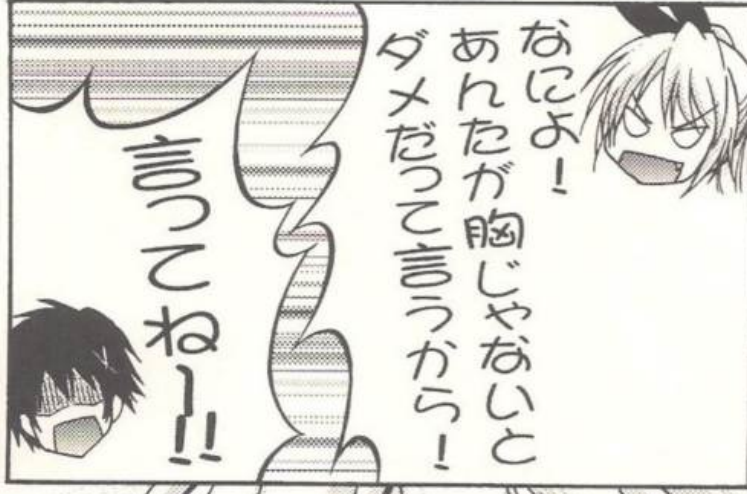 なによ!
あんたが胸じゃないと
ダメだって言うから!
言ってね〜!!